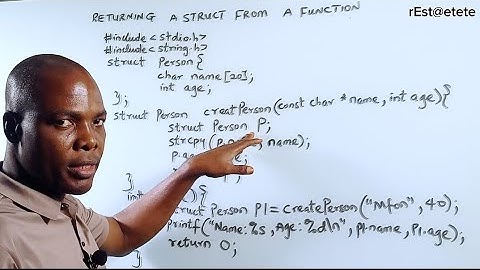 rEst@etete
RETURNING A STRUCT FROM A FUNCTION
#include<stdio.h>
#include<string.h>
struct Person{
char name[20];
int age;
};
struct Person creatPerson(const char *name, int age){
struct Person P;
strcpy(p. , name);
p.a
}
int () {
struct Person P1=createPerson("Mfon", 40);
printf("Name:%s, Age:%d\n", P1.name, P1.age);
return 0;
}